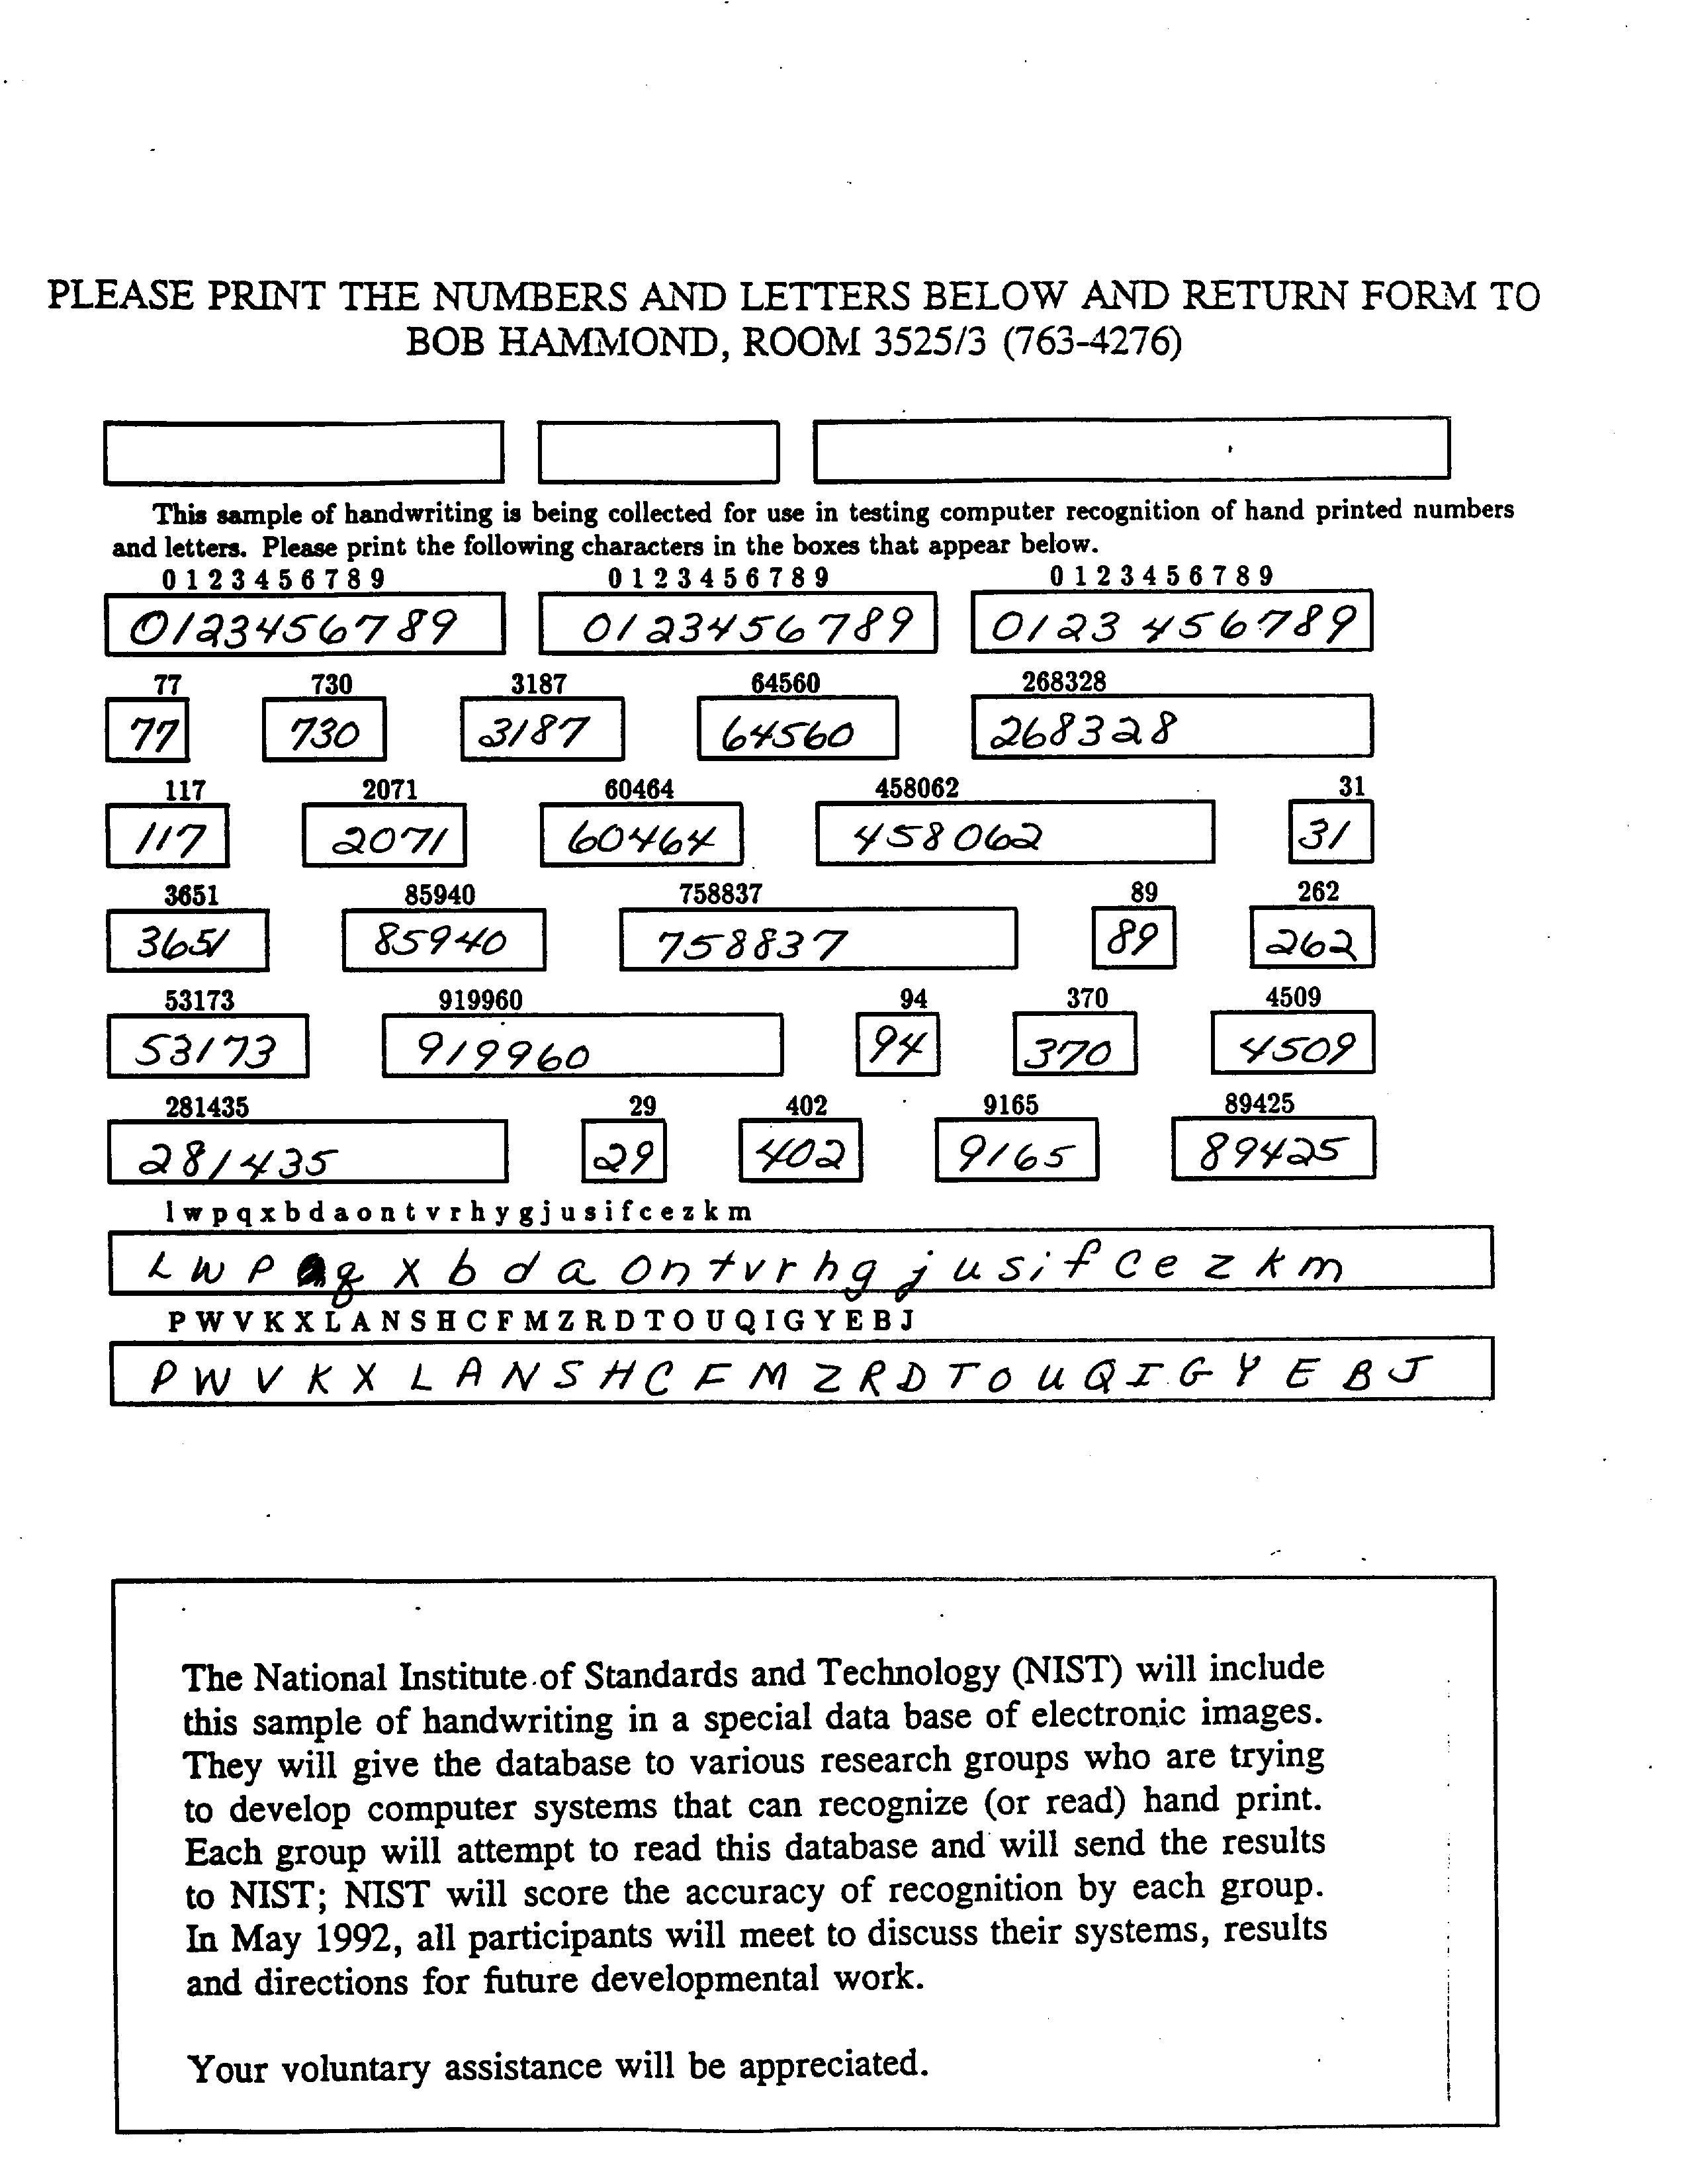 PLEASE PRINT THE NUMBERS AND LETTERS BELOW AND RETURN FORM TO
BOB HAMMOND, ROOM 3525/3 (763-4276)
This sample of handwriting is being collected for use in testing computer recognition of hand printed numbers
and letters. Please print the following characters in the boxes that appear below.
0 1 2 3 4 5 6 7 8 9 0 1 2 3 4 5 6 7 8 9 0 1 2 3 4 5 6 7 8 9
0123456789 0123456789 0123456789
77 730 3187 64560 268328
77 730 3187 64560 268328
117 2071 60464 458062 31
117 2071 60464 458062 31
3651 85940 758837 89 262
3651 85940 758837 89 262
53173 919960 94 370 4509
53173 919960 94 370 4509
281435 29 402 9165 89425
281435 29 402 9165 89425
l w p q x b d a o n t v r h y g j u s i f c e z k m
L W P q x b d a o n t v r h g j u s i f c e z k m
P W V K X L A N S H C F M Z R D T O U Q I G Y E B J
P W V K X L A N S H C F M Z R D T O U Q I G Y E B J
The National Institute of Standards and Technology (NIST) will include
this sample of handwriting in a special data base of electronic images.
They will give the database to various research groups who are trying
to develop computer systems that can recognize (or read) hand print.
Each group will attempt to read this database and will send the results
to NIST; NIST will score the accuracy of recognition by each group.
In May 1992, all participants will meet to discuss their systems, results
and directions for future developmental work.
Your voluntary assistance will be appreciated.